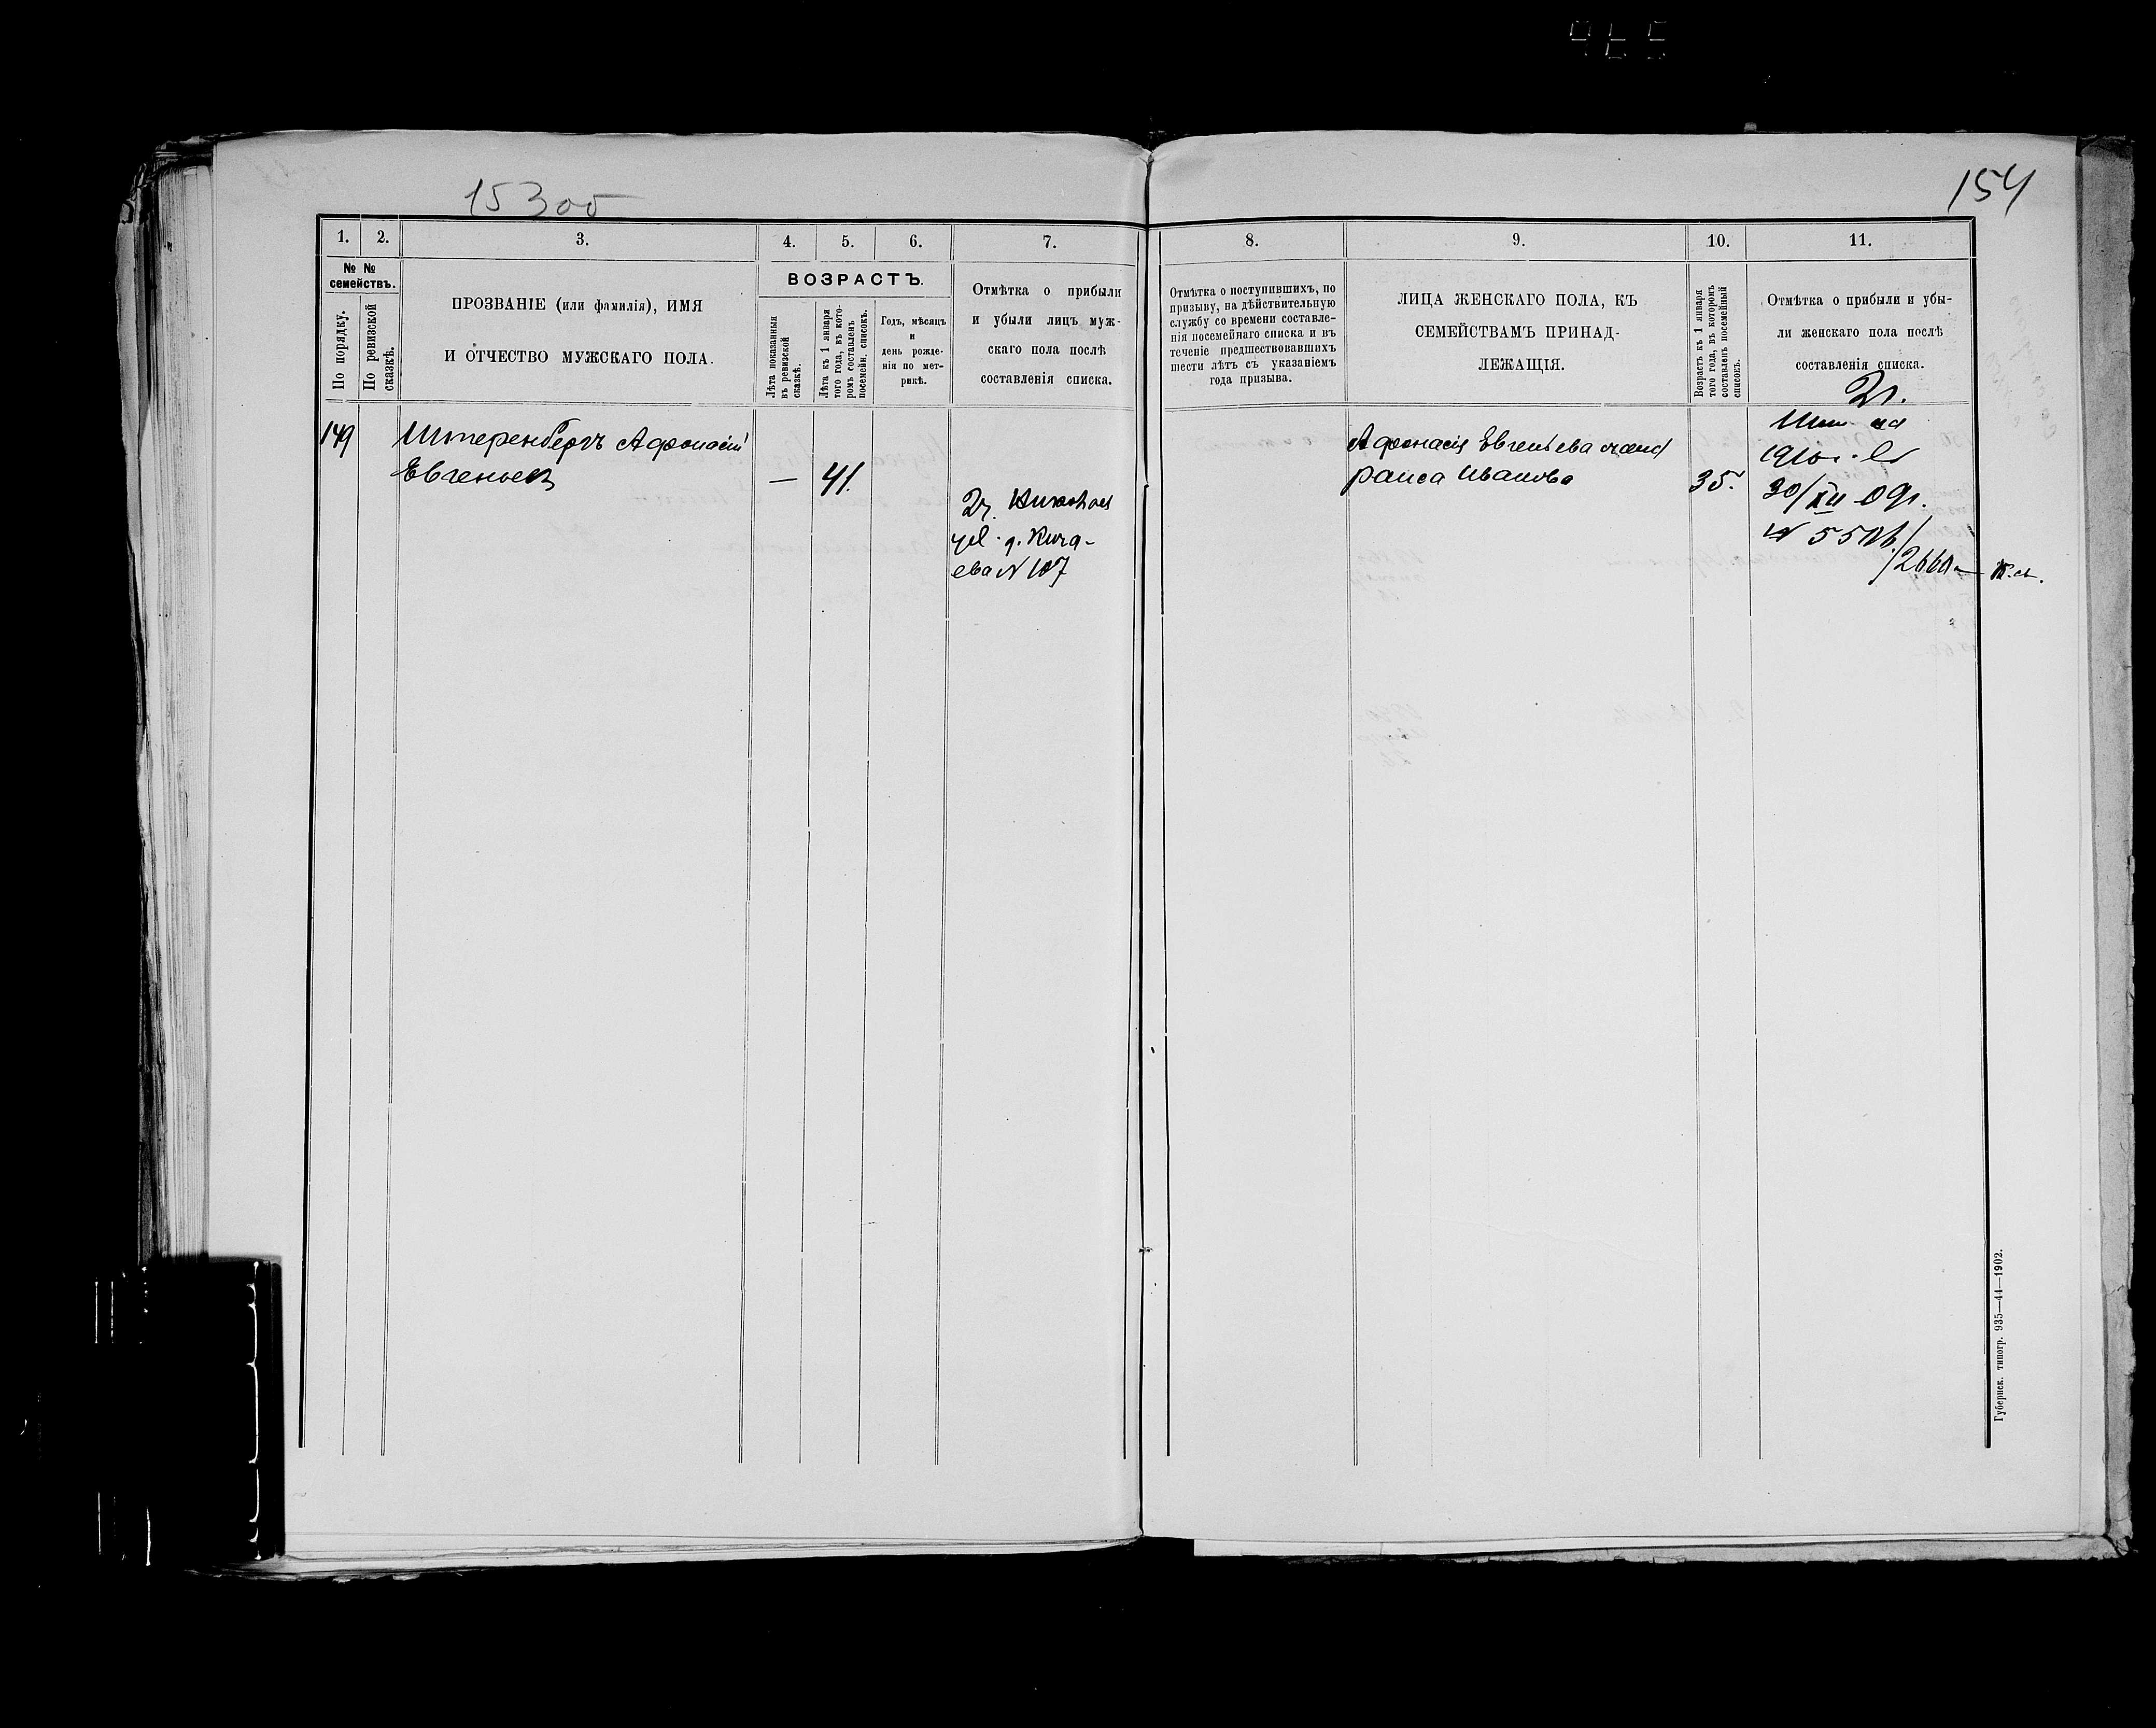 15300
154
1. 2. 3. 4. 5. 6. 7.
№ № семействъ.
По порядку.
По ревизской сказкѣ.
ПРОЗВАНІЕ (или фамилія), ИМЯ
И ОТЧЕСТВО МУЖСКАГО ПОЛА.
ВОЗРАСТЪ.
Лѣта показанныя
въ ревизской
сказкѣ.
Лѣта къ 1 января
того года, въ кото-
ромъ составленъ
посемейн. списокъ.
Годъ, мѣсяцъ
и
день рожде-
нія по мет-
рикѣ.
Отмѣтка о прибыли
и убыли лицъ муж-
скаго пола послѣ
составленія списка.
149 Штеренбергъ Афонасій
Евгеньев — 41.
2г.
ул. д. Кига-
ева № 107
8. 9. 10. 11.
Отмѣтка о поступившихъ, по
призыву, на дѣйствительную
службу со времени составле-
нія посемейнаго списка и въ
теченіе предшествовавшихъ
шести лѣтъ съ указаніемъ
года призыва.
ЛИЦА ЖЕНСКАГО ПОЛА, КЪ
СЕМЕЙСТВАМЪ ПРИНАД-
ЛЕЖАЩІЯ.
Возрастъ къ 1 января
того года, въ которомъ
составленъ посемейный
списокъ.
Отмѣтка о прибыли и убы-
ли женскаго пола послѣ
составленія списка.
2г.
Афонасія Евгеньева жена
Раиса Иванова 35.
на
30/XII 09г.
Губернск. типогр. 935—44—1902.